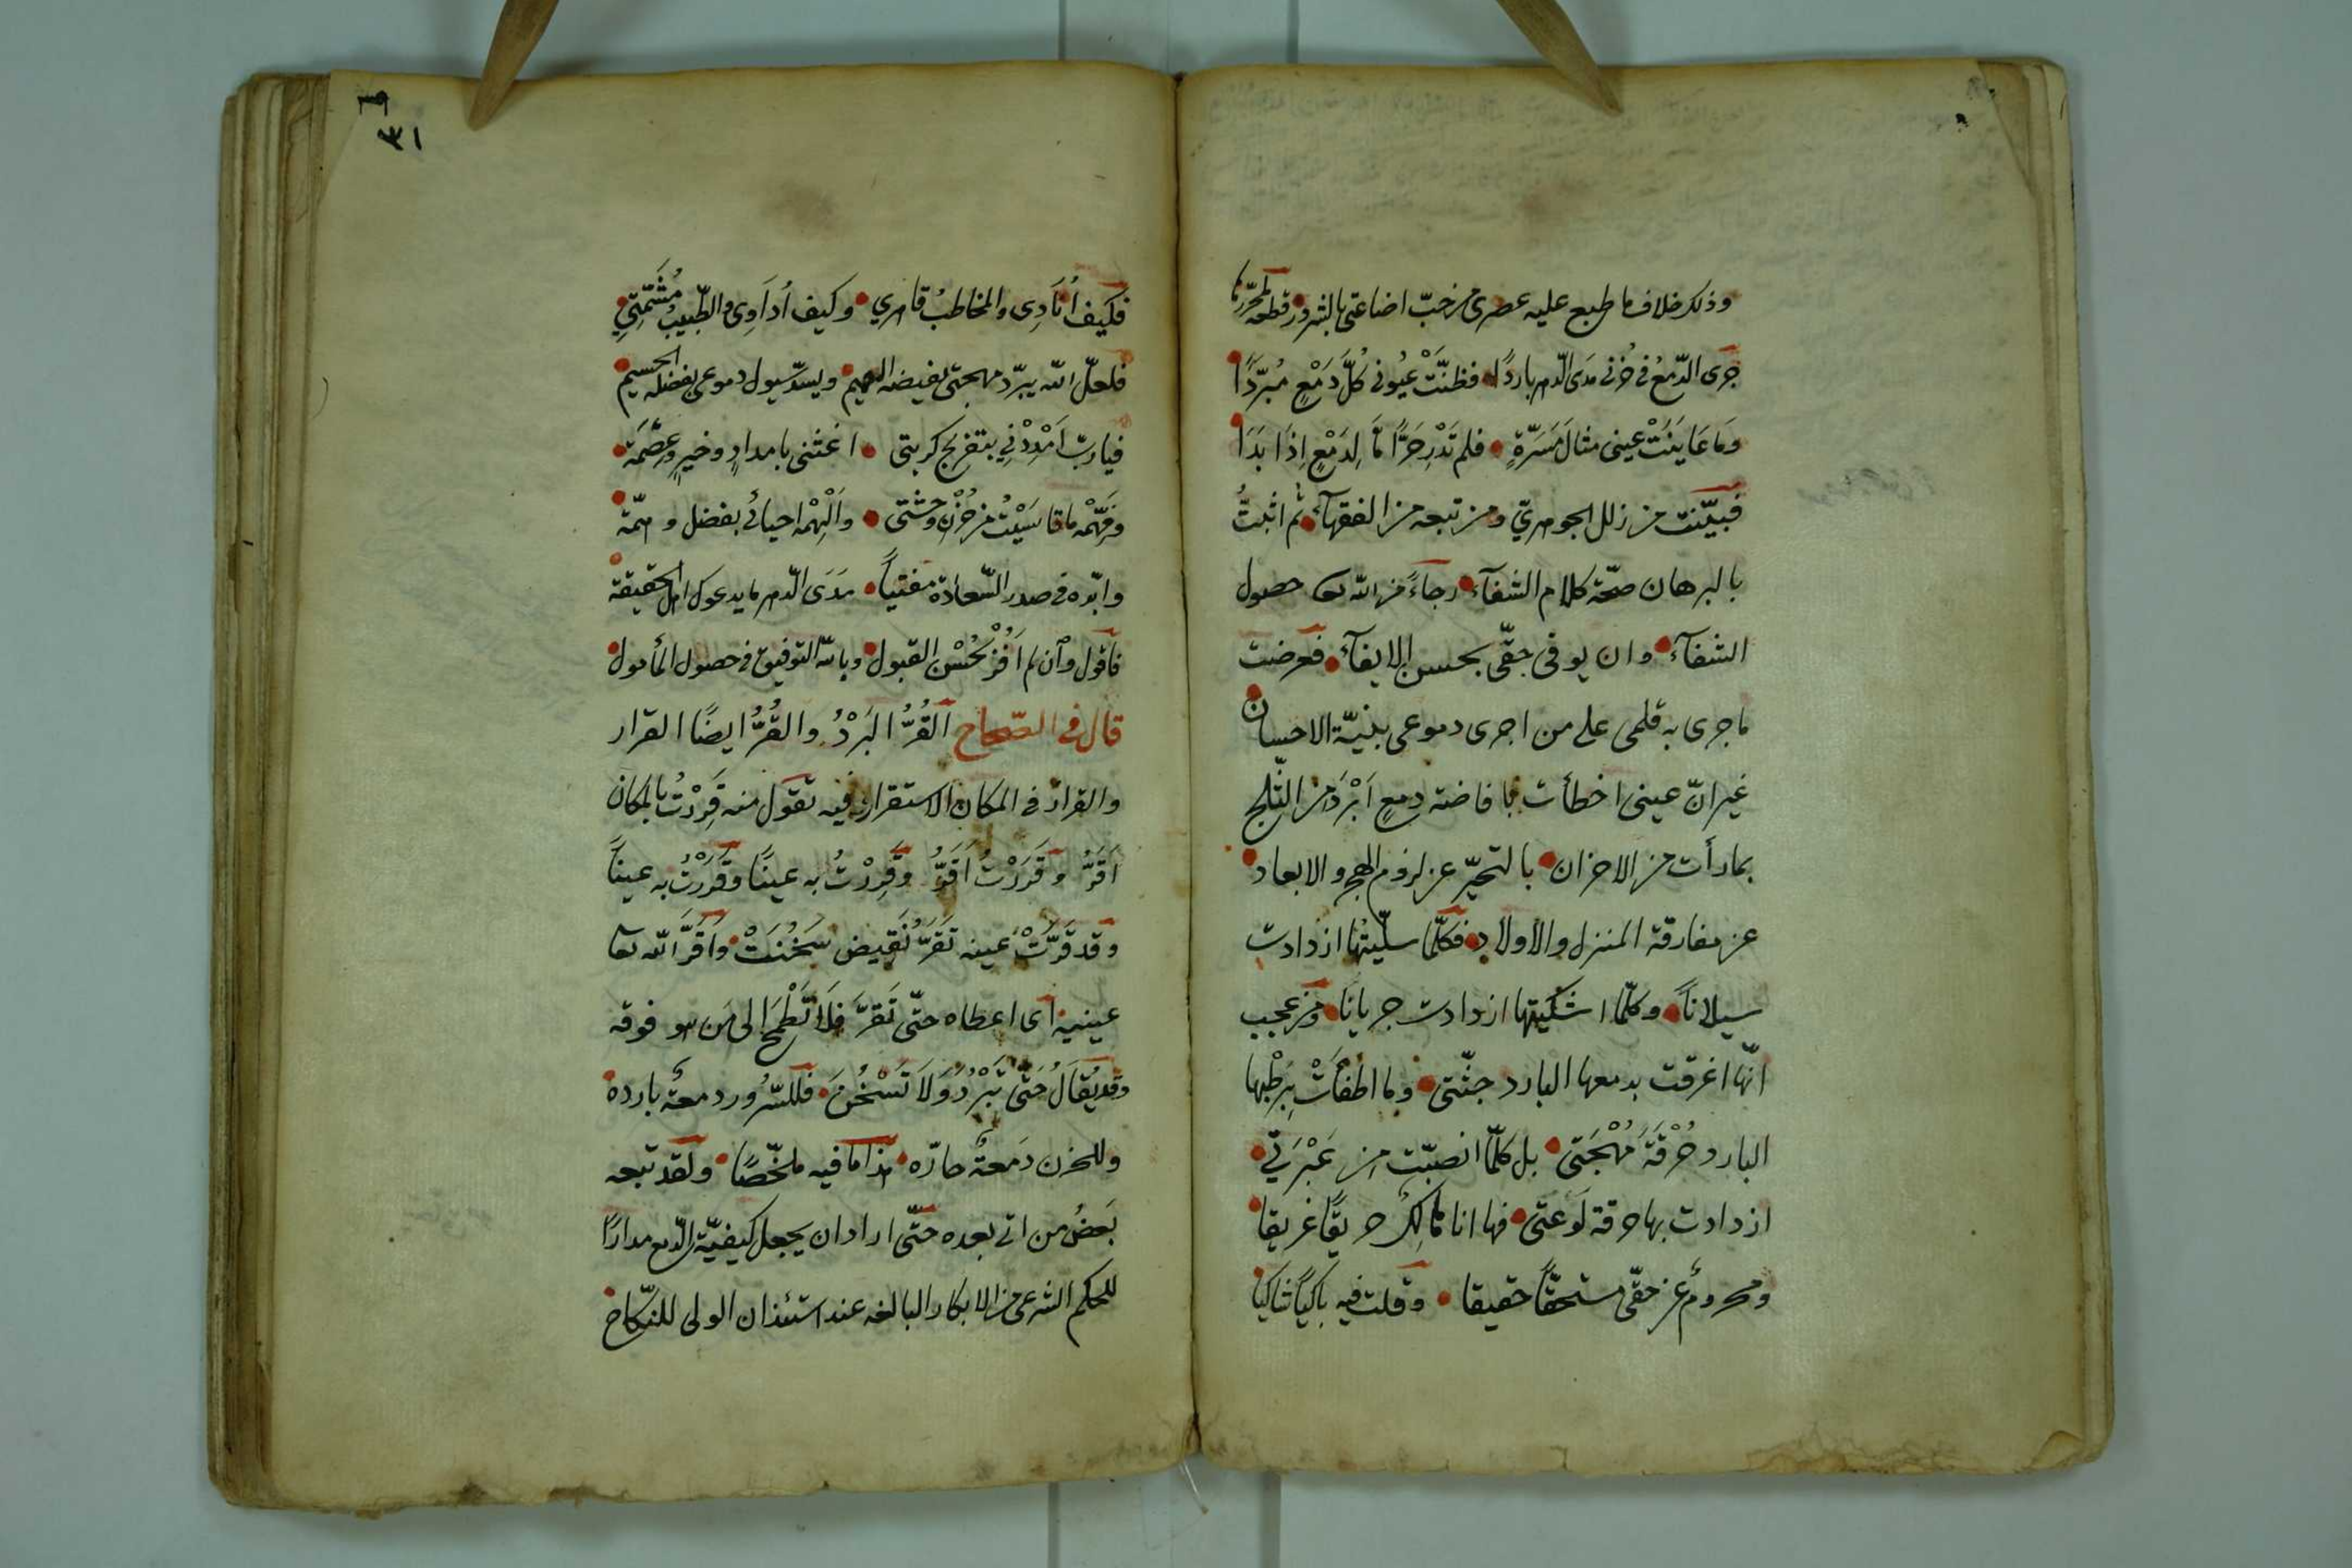 وذلك خلاف ما طبع عليه عصرى من حبّ اضاعتى بالشرور قطعه محرّرها
جرى الدّمعُ فى حُزنى مدَى الدّهر باردًا فظنَّتْ عيُونى كُلَّ دَمْعٍ مُبرّدًا
وَمَا عَايَنَتْ عينى مثالَ مَسَرّةٍ فلم تَدْرِ حَرًّا مَّا لِدَمْعٍ اِذَا بَدَا
فبيّنت من زلل الجوهرىّ ومن تبعه من الفقهآء ثم اثبتُّ
بالبرهان صحّة كلام الشفآء رجاءً من الله تعا حصول
الشفآء وان يوفى حقّى بحسن الايفآء فعرضت
ما جرى به قلمى على من اجرى دموعى بنيّة الاحسان
غير انّ عينى اخطأت بافاضة دمعٍ اَبْرَدَ من الثّلج
بما رأت من الاحزان بالتحيّر عن لزوم الهجر والابعاد
عن مفارقة المنزل والأولاد فكلّما سلّيتُها ازدادت
سيلاناً وكلّما اشكيتها ازدادت جرياناً ومن عجيب
انّها اغرقت بدمعها البارد جثّتى وما اطفأتْ بِرَطْبها
البارد حُرْقَةَ مُهْجَتى بل كلّما انصبّت من عَبْرَتى
ازدادت بها حرقة لَوْعَتى فها انا هالكٌ حريقًا غريقا
ومحرومٌ عن حقّى مستحقًّا حقيقا وقلت فيه باكيًا شاكيًا
٣١
فكيف اُنَادِى والمخاطبُ قاهرى وكيف اُدَاوِى والطّبيبُ مُشَمِّتِى
فلعلّ الله يبرّد مهجتى بفيضه العميم ويسدّ سيول دموعى بفضله الجسيم
فيا ربّ اَمْدِدْنِى بتفريج كربتى اغثنى بامدادٍ وخيرٍ وعصْمَة
وفَهِّمْه ما قاسَيْتُ من حُزْنِ وحْشتى واَلْهِمْه احيائى بفضل وهمّة
وابّده فى صدر السّعادة مفتياً مَدَى الدّهر ما يدعوك اهل الحقيقة
فاقول وان لم اَفُزْ بحُسْن القبول وبالله التوفيق فى حصول المأمول
قال فى الصّحاح اَلقُرُّ البَرْدُ والقُرُّ ايضًا القرار
والقرار فى المكان الاستقرار فيه تقول منه قَرِرْتُ بالمكان
اَقَرُّ وقَرَرْتُ اَقَرُّ وقَرِرْتُ به عينًا وقَرَرْتُ به عيناً
وقد قَرَّتْ عينه تَقَرُّ نقيض سَخُنَتْ واَقَرَّ الله تعا
عينيه اى اعطاه حتّى تَقَرَّ فلاَ تَطْمَحُ الى مَن هو فوقه
وقد يُقَالُ حَتّى تَبْرُدَ وَلاَ تَسْخُنَ فللسّرُور دمعةٌ بارده
وللحزن دَمعةٌ حارّه هذا ما فيه ملخّصًا ولقد تبعه
بَعضُ من اتى بعده حتّى اراد ان يجعل كيفيّة الدّمع مدارًا
للحكم الشرعى من الابكار البالغه عند استئذان الولى للنّكاح